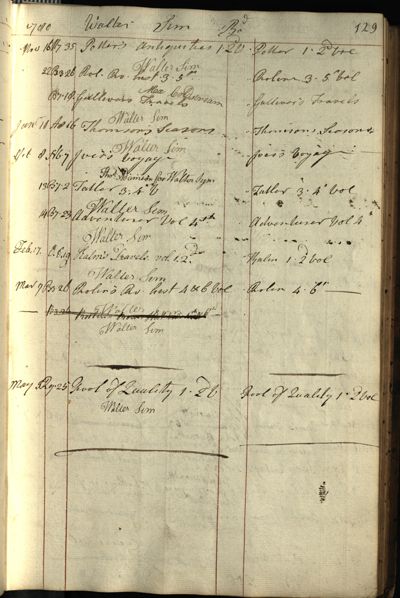 1790 Walter Sim Bd 129
Nov 16 B7 35 Potter's Antiquities 1 2 V Potter 1. 2d vol
Walter Sim
22 B3 26 Rol. Ro. hist 3. 5th Roline 3. 5th Vol
Gullivers Travels Gulliver's Travels
Walter Sim
Jan 10 16 Thomsons Seasons Thomson's Seasons
Walter Sim
8 7 Ives's Voyage Ives's Voyage
for Walter Sym
13 B7 2 Tatler 3. 4th V Tatler 3. 4th Vol
Walter Sim
14 B7 23 Adventurer Vol 4th Adventurer Vol 4th
Walter Sim
Feb. 17. 19 Kalm's Travels vol. 1. 2d Kalm 1. 2d vol
Walter Sim
Mar 9 B3 26 Rolin's Ro. hist 4 & 6 Vol Rolin 4. 6th
Walter Sim
May 25 Fool of Quality 1. 2d V Fool of Quality 1. 2d Vol
Walter Sim